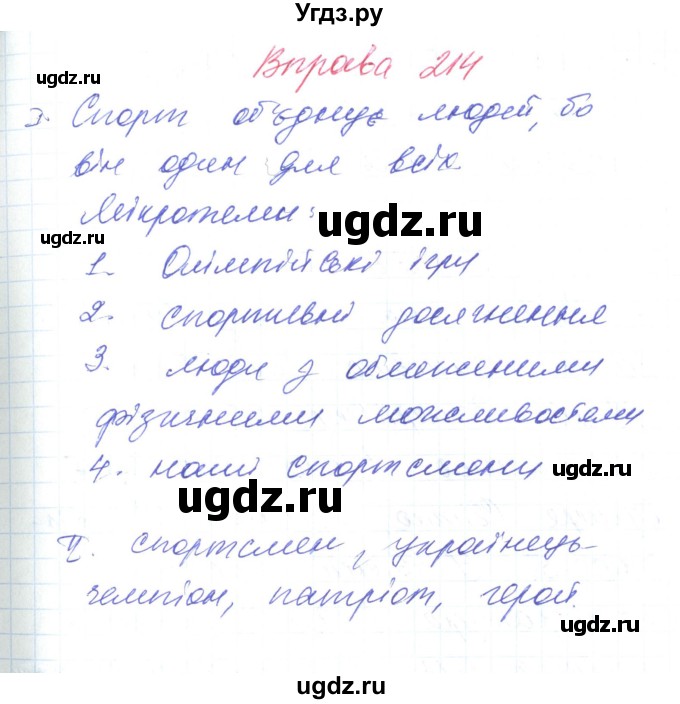 Угдз.ру
ugdz.ru
Вправа 214
3. Спорт об'єднує людей, бо
він один для всіх
Мікротеми:
ugdz.ru
ugdz.ru
1. Олімпійські ігри
2. спортивні досягнення
3. люди з обмеженими
фізичними можливостями
4. наші спортсмени
ugdz.ru
ugdz.ru
II. спортсмен, українець-
чемпіон, патріот, герой.
ugdz.ru
ugdz.ru